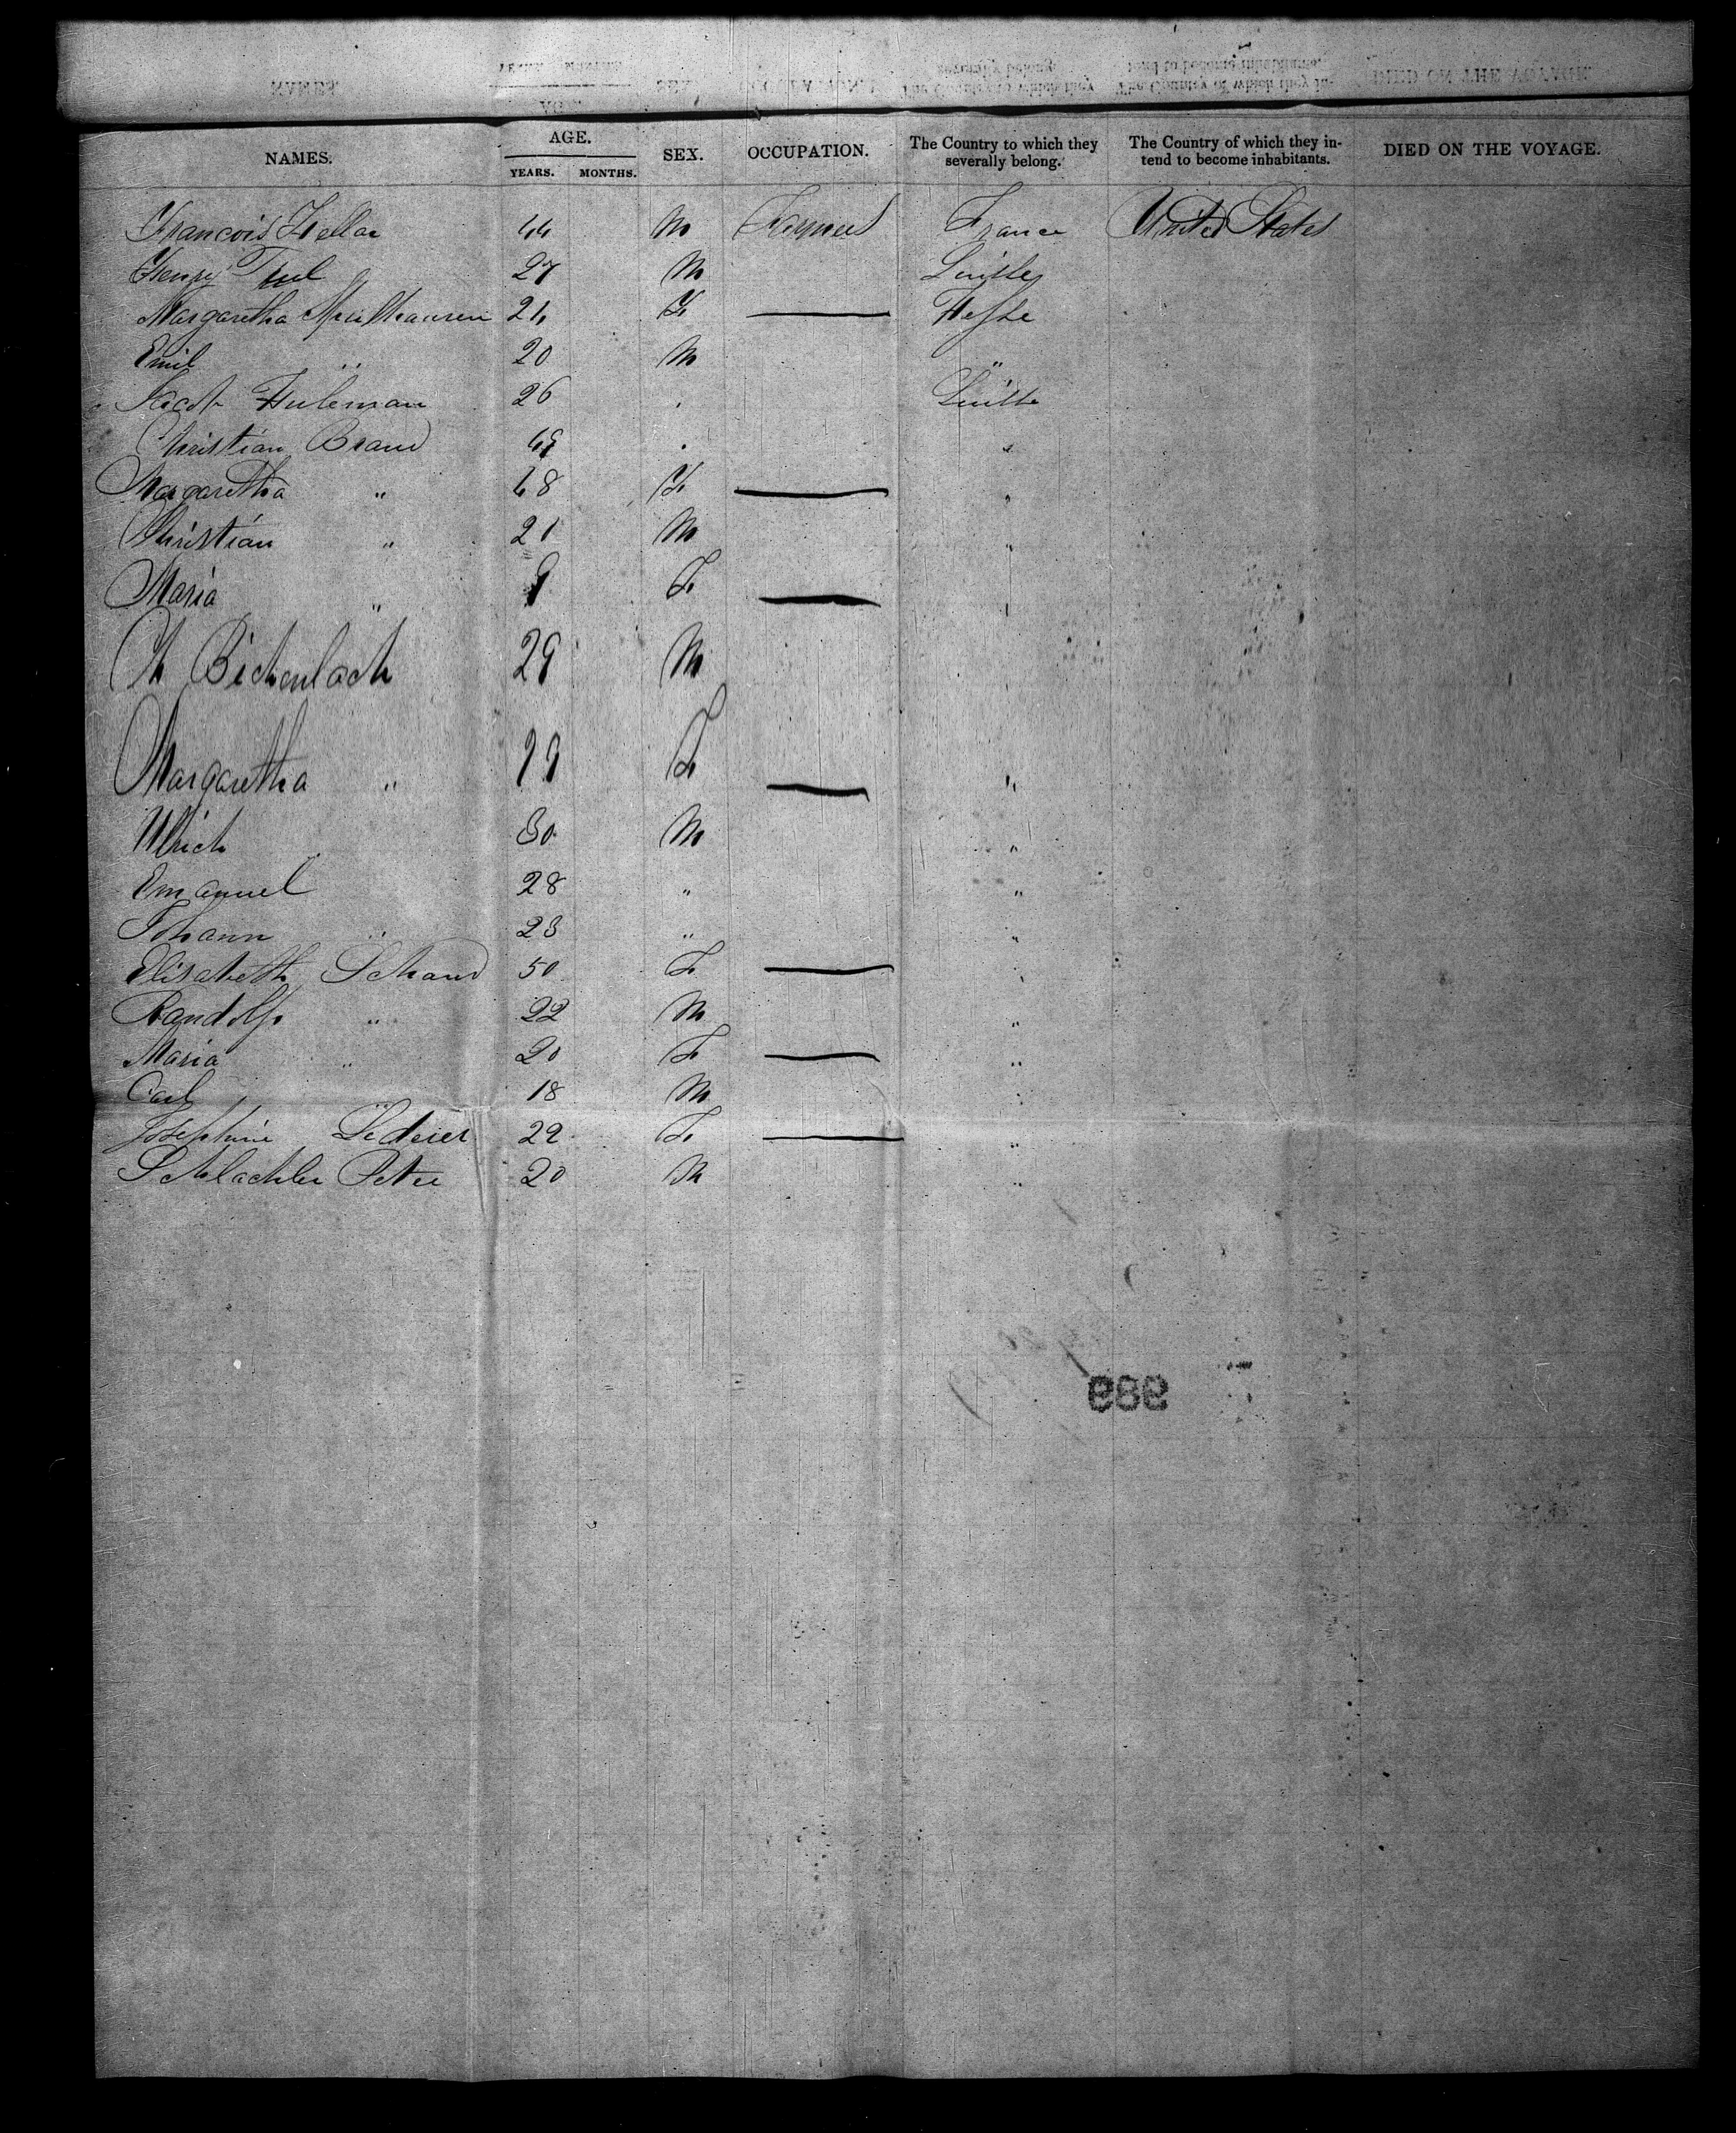 NAMES. AGE. YEARS. MONTHS. SEX. OCCUPATION. The Country to which they severally belong. The Country of which they intend to become inhabitants. DIED ON THE VOYAGE.
Francois Zellar 44 M Farmer France United States
Henry 27 M Suisse
Margaretha Mulhausen 24 F — Hesse
Emil " 20 M "
Jacob Huleman 26 . Suisse
Christian Brand 49 . "
Margaretha " 48 F — "
Christian " 21 M "
Maria " 9 F — "
Ch Bichenlach 29 M
Margaretha " 19 F — "
Ulrich 30 M "
Emanuel 28 " "
Johann " 23 " "
Elisabeth Schaud 50 F — "
Randolf " 22 M "
Maria " 20 F — "
Carl " 18 M "
Josephine Lederer 22 F — "
Schlachler Peter 20 M "
989